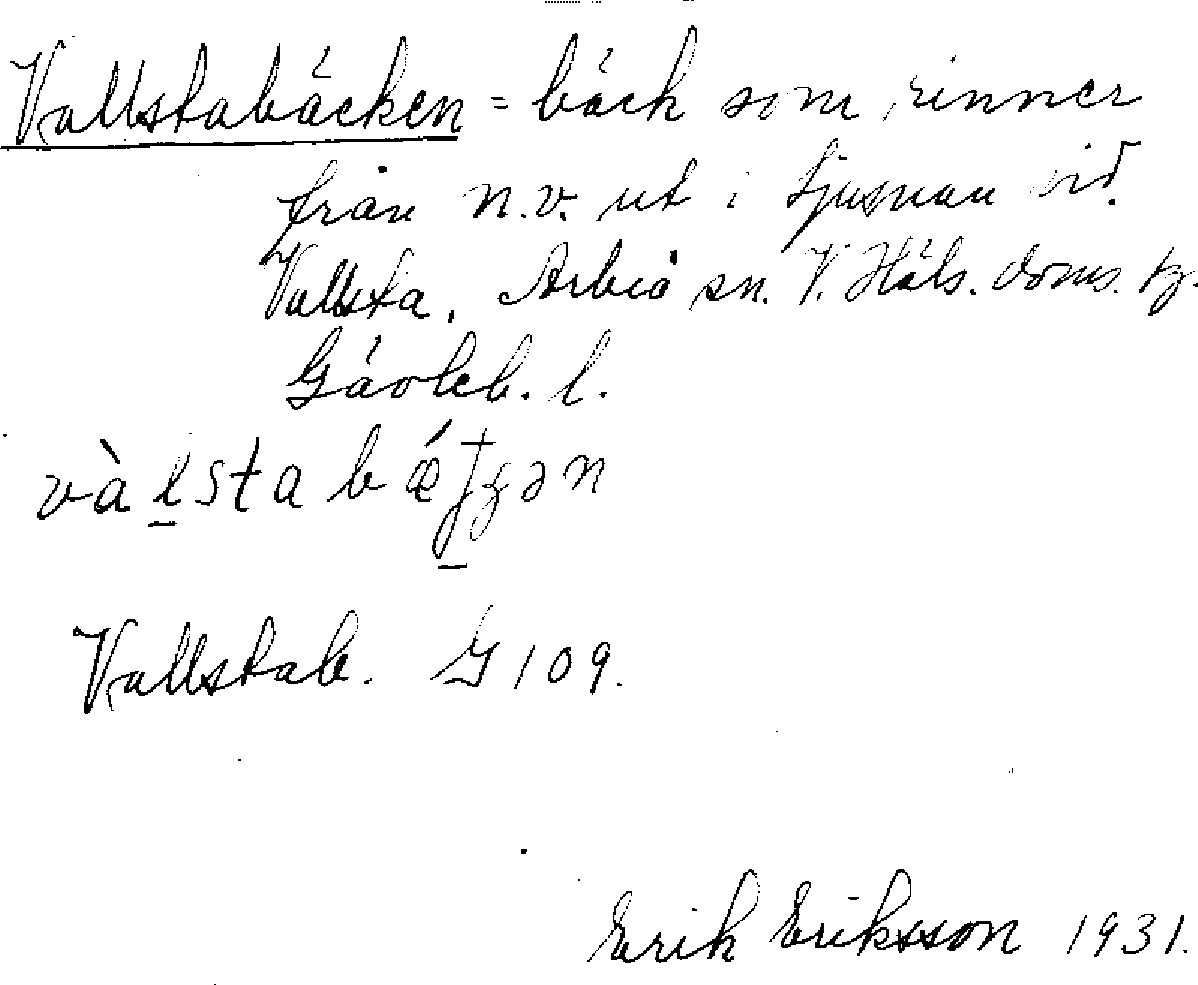 Vallstabäcken = bäck som rinner
från n.v. ut i Ljusnan vid
Vallsta, Arbrå sn. V. Häls. doms.
Gävleb. l.
Vallstab. G 109.
Erik Eriksson 1931.